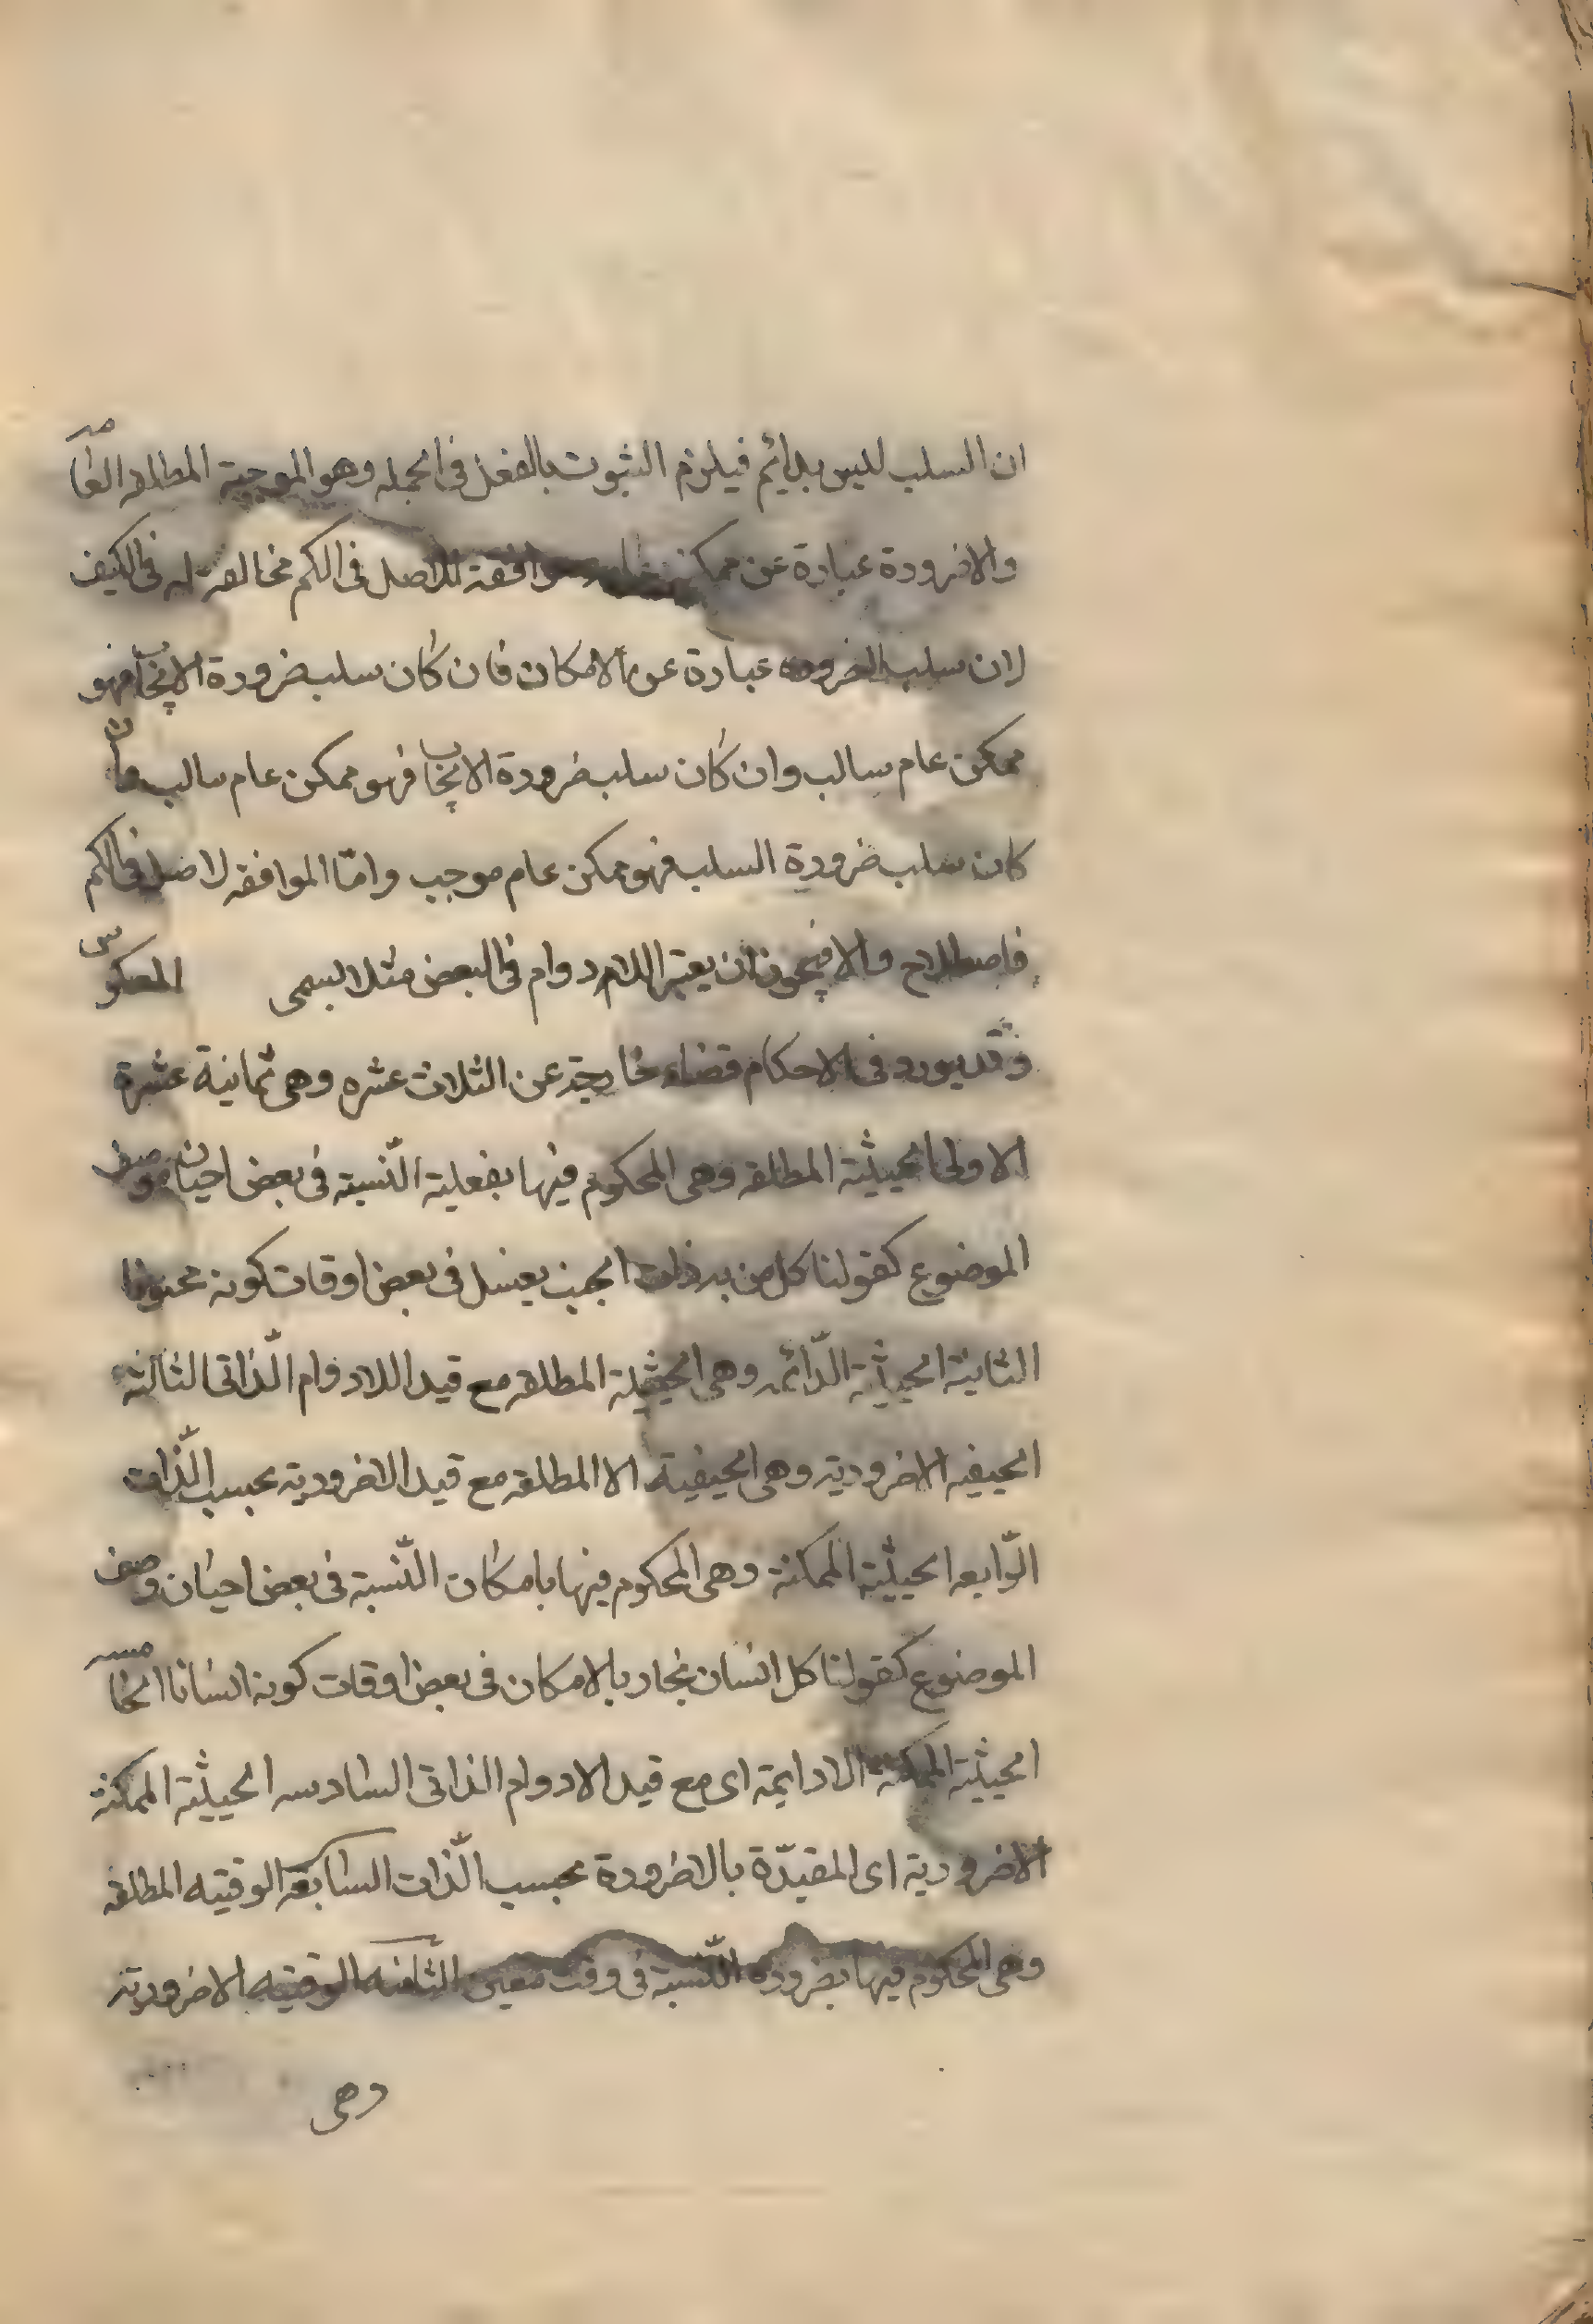 ان السلب ليس بدائم فيلزم الثبوت بالفعل فى الجمله وهو الموجبة المطلقه العامه
والاضرودة عبارة عن ممكنه موافقة للاصل فى الكم مخالفة له فى الكيف
لان سلب الضروده عبارة عن الامكان فان كان سلب ضرودة الايجاب فهو
ممكن عام سالب وان كان سلب ضرودة الايجاب فهو ممكن عام سالب وان
كان سلب ضرودة السلب فهو ممكن عام موجب وامّا الموافقه لاصل فى الكم
فاصطلاح والا فيجوز ان يعتبر اللادوام فى البعض مثلا ليسمى المعكوس
وقد يورد فى الاحكام قضاء خارجة عن الثلاث عشره وهى ثمانية عشرة
الاولى الحيثية المطلقه وهى المحكوم فيها بفعلية النّسبة فى بعض احيان وصف
الموضوع كقولنا كل من به ذات الجنب يعسل فى بعض اوقات كونه مجنوبا
الثانية الحيثية الدّائمه وهى الحيثية المطلقه مع قيد اللادوام الذّاتى الثالثة
الحيفيه الاضرودية وهى الحيفية الا المطلقة مع قيد الاضرودية بحسب الذّات
الرّابعه الحيثية الممكنة وهى المحكوم فيها بامكان النّسبة فى بعض احيان وصف
الموضوع كقولنا كل انسان نجار بالامكان فى بعض اوقات كونه انسانا الخامسه
الحيثية الممكنة الادايمة اى مع قيد الادوام الذاتى السادسه الحيثية الممكنة
الاضرودية اى المقيدّة بالاضرودة بحسب الذّات السابعة الوقتيه المطلقه
وهى المحكوم فيها بضروده النّسبة فى وقت معين الثّامنه الوقتيه الاضرودية
وهى